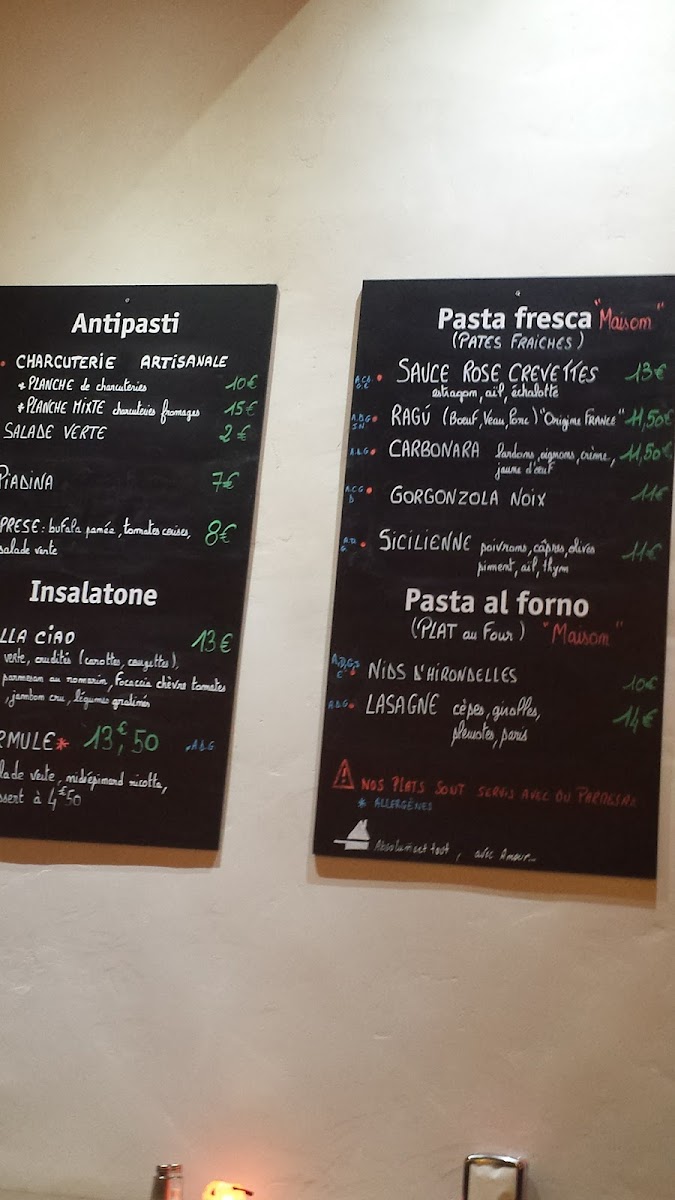 Antipasti
CHARCUTERIE ARTISANALE
* PLANCHE de charcuteries 10€
* PLANCHE MIXTE charcuteries fromages 15€
SALADE VERTE 2€
PIADINA 7€
PRESE : bufala panée, tomates cerises, 8€
salade verte
Insalatone
LLA CIAO 13€
verte, crudités (carottes, courgettes),
parmesan au romarin, Focaccia chèvre tomates
, jambon cru, légumes gratinés
RMULE* 13,€50 * A.D.G
lade verte, nids piment ricotta,
ssert à 4€50
Pasta fresca "Maison"
(PATES FRAICHES)
SAUCE ROSE CREVETTES 13€
estragon, ail, échalotte
RAGÚ (Boeuf, Veau, Porc) "Origine FRANCE" 11,50€
CARBONARA lardons, oignons, crème, 11,50€
jaune d'oeuf
GORGONZOLA NOIX 11€
SICILIENNE poivrons, câpres, olives 11€
piment, ail, thym
Pasta al forno
(PLAT au Four) "Maison"
NIDS D'HIRONDELLES 10€
A.D.G LASAGNE cèpes, girolles, 14€
pleurotes, paris
NOS PLATS SONT SERVIS AVEC DU PARMESAN
* ALLERGÈNES
Absolument tout, avec Amour...